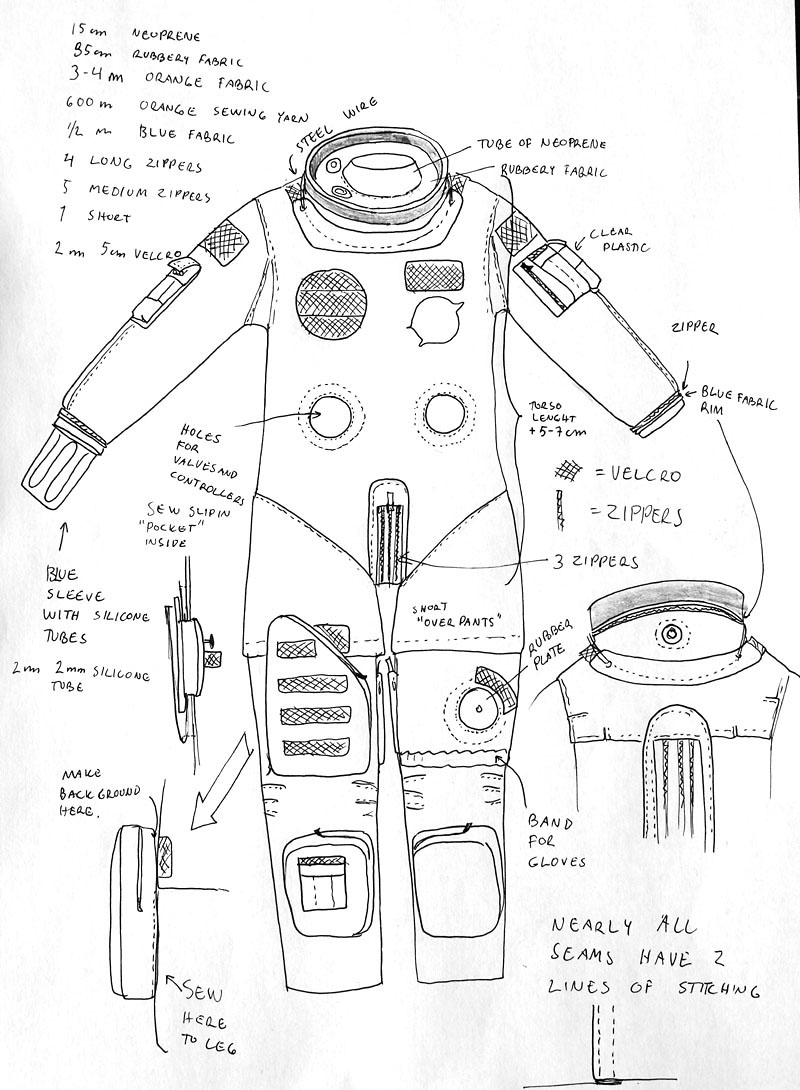 15cm NEOPRENE
35cm RUBBERY FABRIC
3-4m ORANGE FABRIC
600m ORANGE SEWING YARN
1/2 m BLUE FABRIC
4 LONG ZIPPERS
5 MEDIUM ZIPPERS
1 SHORT
2m 5cm VELCRO
STEEL WIRE
TUBE OF NEOPRENE
RUBBERY FABRIC
CLEAR
PLASTIC
ZIPPER
BLUE FABRIC
RIM
TORSO
LENGHT
+5-7cm
HOLES
FOR
VALVES AND
CONTROLLERS
= VELCRO
= ZIPPERS
SEW SLIP IN
"POCKET"
INSIDE
3 ZIPPERS
BLUE
SLEEVE
WITH SILICONE
TUBES
2m 2mm SILICONE
TUBE
SHORT
"OVERPANTS"
RUBBER
PLATE
MAKE
BACKGROUND
HERE.
BAND
FOR
GLOVES
SEW
HERE
TO LEG
NEARLY ALL
SEAMS HAVE 2
LINES OF STITCHING